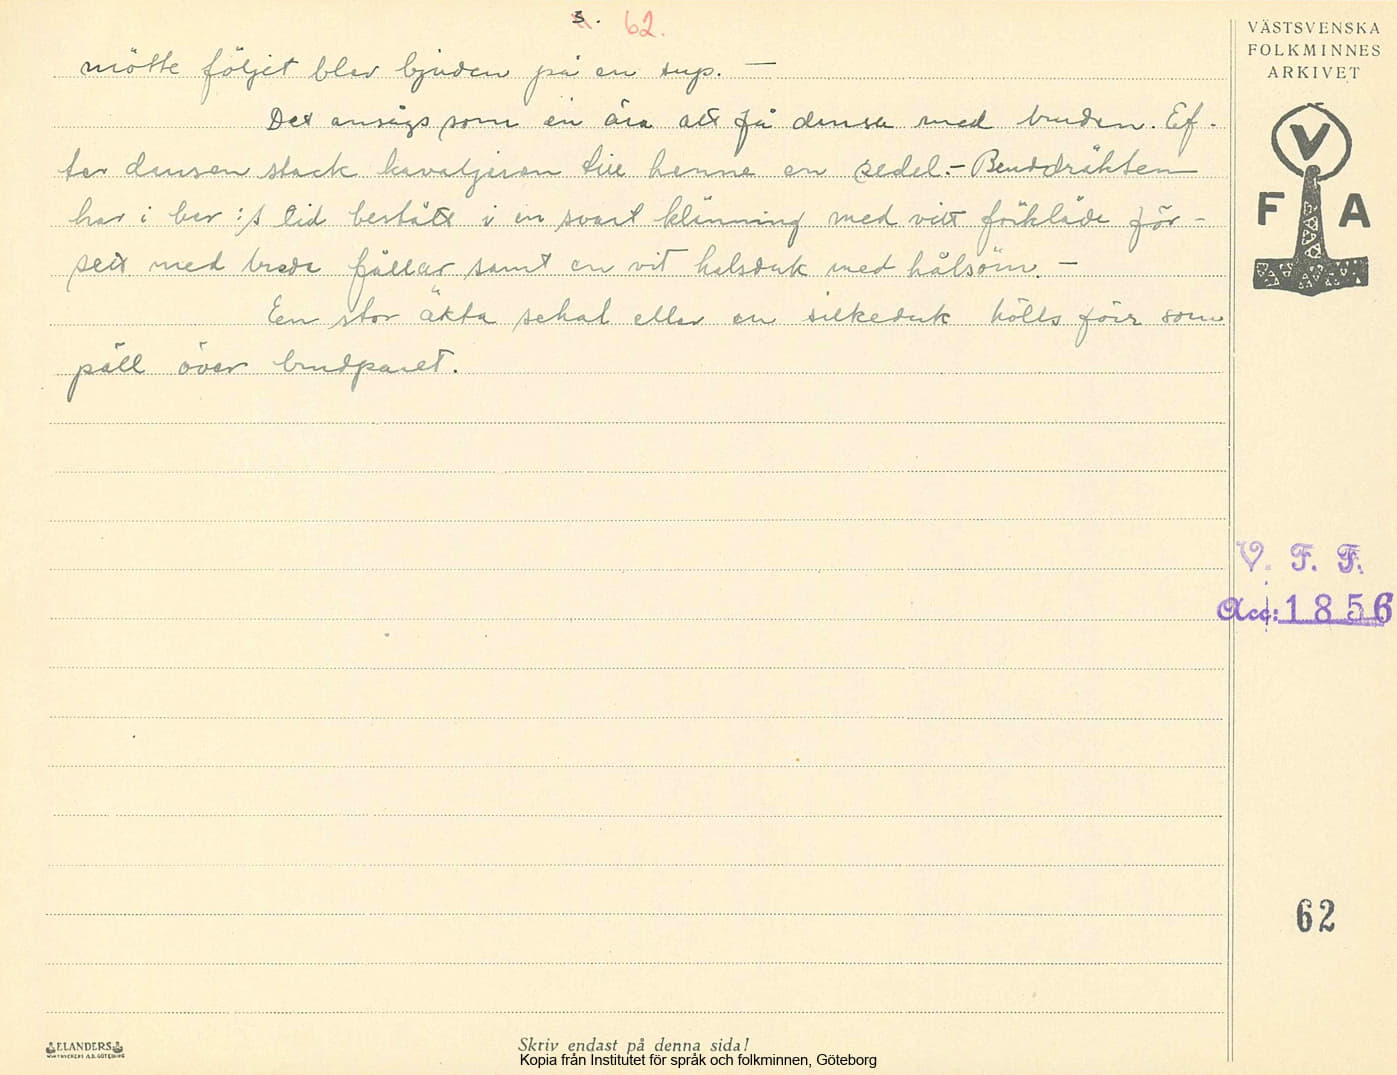 3. 62.
mötte följet blev bjuden på en sup. —
Det ansågs som en ära att få dansa med bruden. Ef-
ter dansen stack kavaljeren till henne en sedel. — Bruddräkten
har i ber:s tid bestått i en svart klänning med vitt förkläde för-
sett med breda fållar samt en vit halsduk med hålsöm. —
En stor äkta schal eller en silkeduk hölls förr som
päll över brudparet.
VÄSTSVENSKA
FOLKMINNES
ARKIVET
V
F A
V. F. F.
Acc: 1856
62
ELANDERS
Skriv endast på denna sida!
Kopia från Institutet för språk och folkminnen, Göteborg